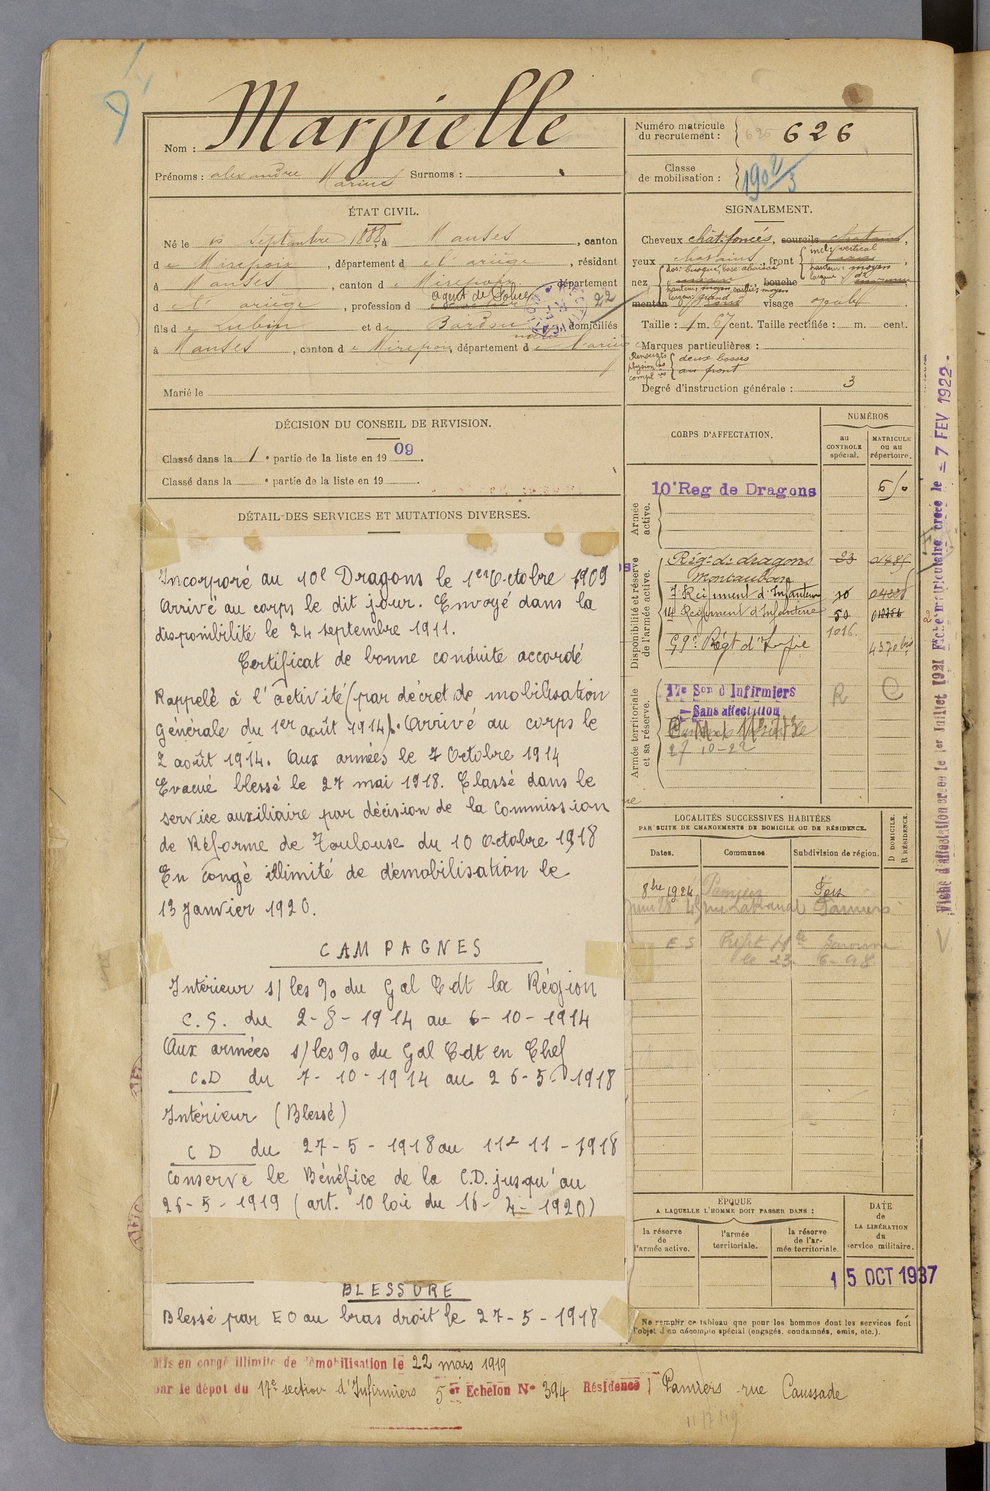 Nom : Margielle
Prénoms : alexandre Marius Surnoms :
Numéro matricule du recrutement : 626
Classe de mobilisation : 1902/3
ÉTAT CIVIL.
Né le septembre 188 à Manses, canton
de Mirepoix, département d e l'ariège, résidant
à Manses, canton de Mirepoix, département
d e l'ariège, profession d agent de Police 22
fils d e Lubin et de Bardou domiciliés
à Manses, canton d e Mirepoix, département d e l'arie
Marié le
SIGNALEMENT.
Cheveux chât. foncés, sourcils chatains,
yeux chatains, front incl. vertical
hauteur moyen
largeur
nez dos: busqué, base abaissée
hauteur moyen, saillie moyen
largeur grand
bouche
menton visage ovale
Taille : 1 m. 67 cent. Taille rectifiée : m. cent.
Marques particulières :
Renseigts physion. les compl. res deux bosses
au front
Degré d'instruction générale : 3
DÉCISION DU CONSEIL DE REVISION.
Classé dans la 1 e partie de la liste en 1909.
Classé dans la e partie de la liste en 19
DÉTAIL DES SERVICES ET MUTATIONS DIVERSES.
Incorporé au 10e Dragons le 1er Octobre 1909
Arrivé au corps le dit jour. Envoyé dans la
disponibilité le 24 septembre 1911.
Certificat de bonne conduite accordé
Rappelé à l'activité (par décret de mobilisation
Générale du 1er août 1914). Arrivé au corps le
2 août 1914. Aux armées le 7 Octobre 1914
Evacué blessé le 27 mai 1918. Classé dans le
service auxiliaire par décision de la Commission
de Réforme de Toulouse du 10 Octobre 1918
En congé illimité de démobilisation le
13 Janvier 1920.
CAMPAGNES
Intérieur s/ les 9o du Gal Cdt la Région
C.S. du 2-8-1914 au 6-10-1914
Aux armées s/ les 9o du Gal Cdt en Chef
C.D du 7-10-1914 au 26-5-1918
Intérieur (Blessé)
C D du 27-5-1918 au 11-11-1918
Conserve le Bénéfice de la C.D. jusqu'au
26-5-1919 (art. 10 loi du 16-4-1920)
BLESSURE
Blessé par E O au bras droit le 27-5-1918
CORPS D'AFFECTATION.
NUMÉROS
au CONTROLE spécial.
MATRICULE ou au répertoire.
Armée active.
10e Reg de Dragons
Disponibilité et réserve de l'armée active.
Régt de dragons 23
Montauban
7 Régiment d'Infanterie 10
14 Régiment d'Infanterie 50
1016.
59e Régt d'Infie 4370 bis
Armée territoriale et sa réserve.
17e Son d'Infirmiers R C
Sans affectation
27-10-22
LOCALITÉS SUCCESSIVES HABITÉES
PAR SUITE DE CHANGEMENTS DE DOMICILE OU DE RÉSIDENCE.
Dates. Communes Subdivision de région. D DOMICILE. R RÉSIDENCE.
8bre 1924 Pamiers Foix
rue Lakanal Pamiers
E S Préft Hte Garonne
le 23-6-98
ÉPOQUE
A LAQUELLE L'HOMME DOIT PASSER DANS :
la réserve de l'armée active.
l'armée territoriale.
la réserve de l'armée territoriale.
DATE de LA LIBÉRATION DU service militaire.
15 OCT 1937
Ne remplir ce tableau que pour les hommes dont les services font
l'objet d'un décompte spécial (engagés, condamnés, omis, etc.).
Mis en congé illimité de démobilisation le 22 mars 1919
par le dépot du 17e section d'Infirmiers 5er Echelon No 394 Résidence Pamiers rue Caussade
Fiche d'affectation créée le 1er Juillet 1921 Fiche matriculaire créée le = 7 FEV 1922